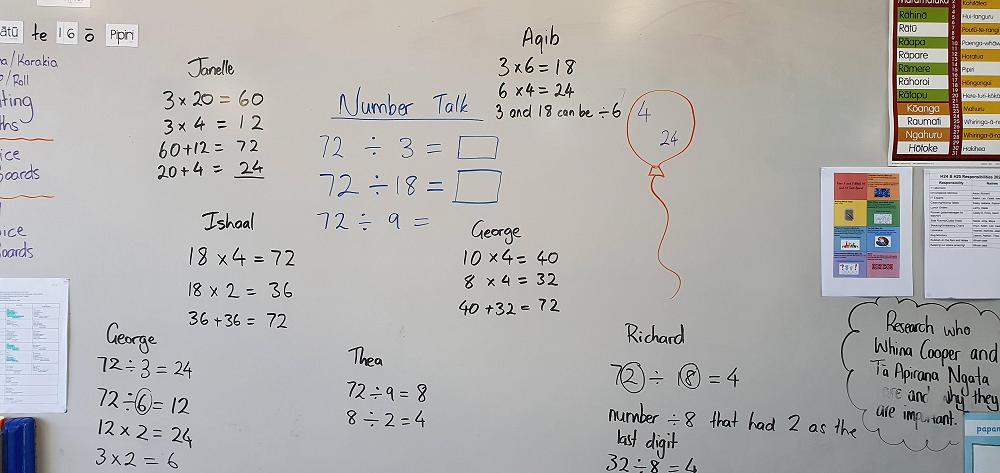 ātū te 16 ō Pipiri
a/Karakia
/Roll
ting
ths
ice
oards
ice
oards
Janelle
3 × 20 = 60
3 × 4 = 12
60+12 = 72
20+4 = 24
Number Talk
72 ÷ 3 =
72 ÷ 18 =
72 ÷ 9 =
Aqib
3 × 6 = 18
6 × 4 = 24
3 and 18 can be ÷ 6
4
24
Ishaal
18 × 4 = 72
18 × 2 = 36
36 + 36 = 72
George
10 × 4 = 40
8 × 4 = 32
40 + 32 = 72
George
72 ÷ 3 = 24
72 ÷ 6 = 12
12 × 2 = 24
3 × 2 = 6
Thea
72 ÷ 9 = 8
8 ÷ 2 = 4
Richard
72 ÷ 18 = 4
number ÷8 that had 2 as the
last digit
32 ÷ 8 = 4
Research who
Whina Cooper and
Tā Apirana Ngata
are and why they
are important.
Rāhina
Rātū
Rāapa
Rāpare
Rāmere
Rāhoroi
Rātapu
Kōanga
Raumati
Ngahuru
Hōtoke
Kohitātea
Hui-tanguru
Poutū-te-rangi
Paenga-whāw
Haratua
Pipiri
Hōngongoi
Here-turi-kōkā
Mahuru
Whiringa-ā-n
Whiringa-ā-r
Hakihea
H24 & H25 Responsibilities 202
Responsibility
Names
papan